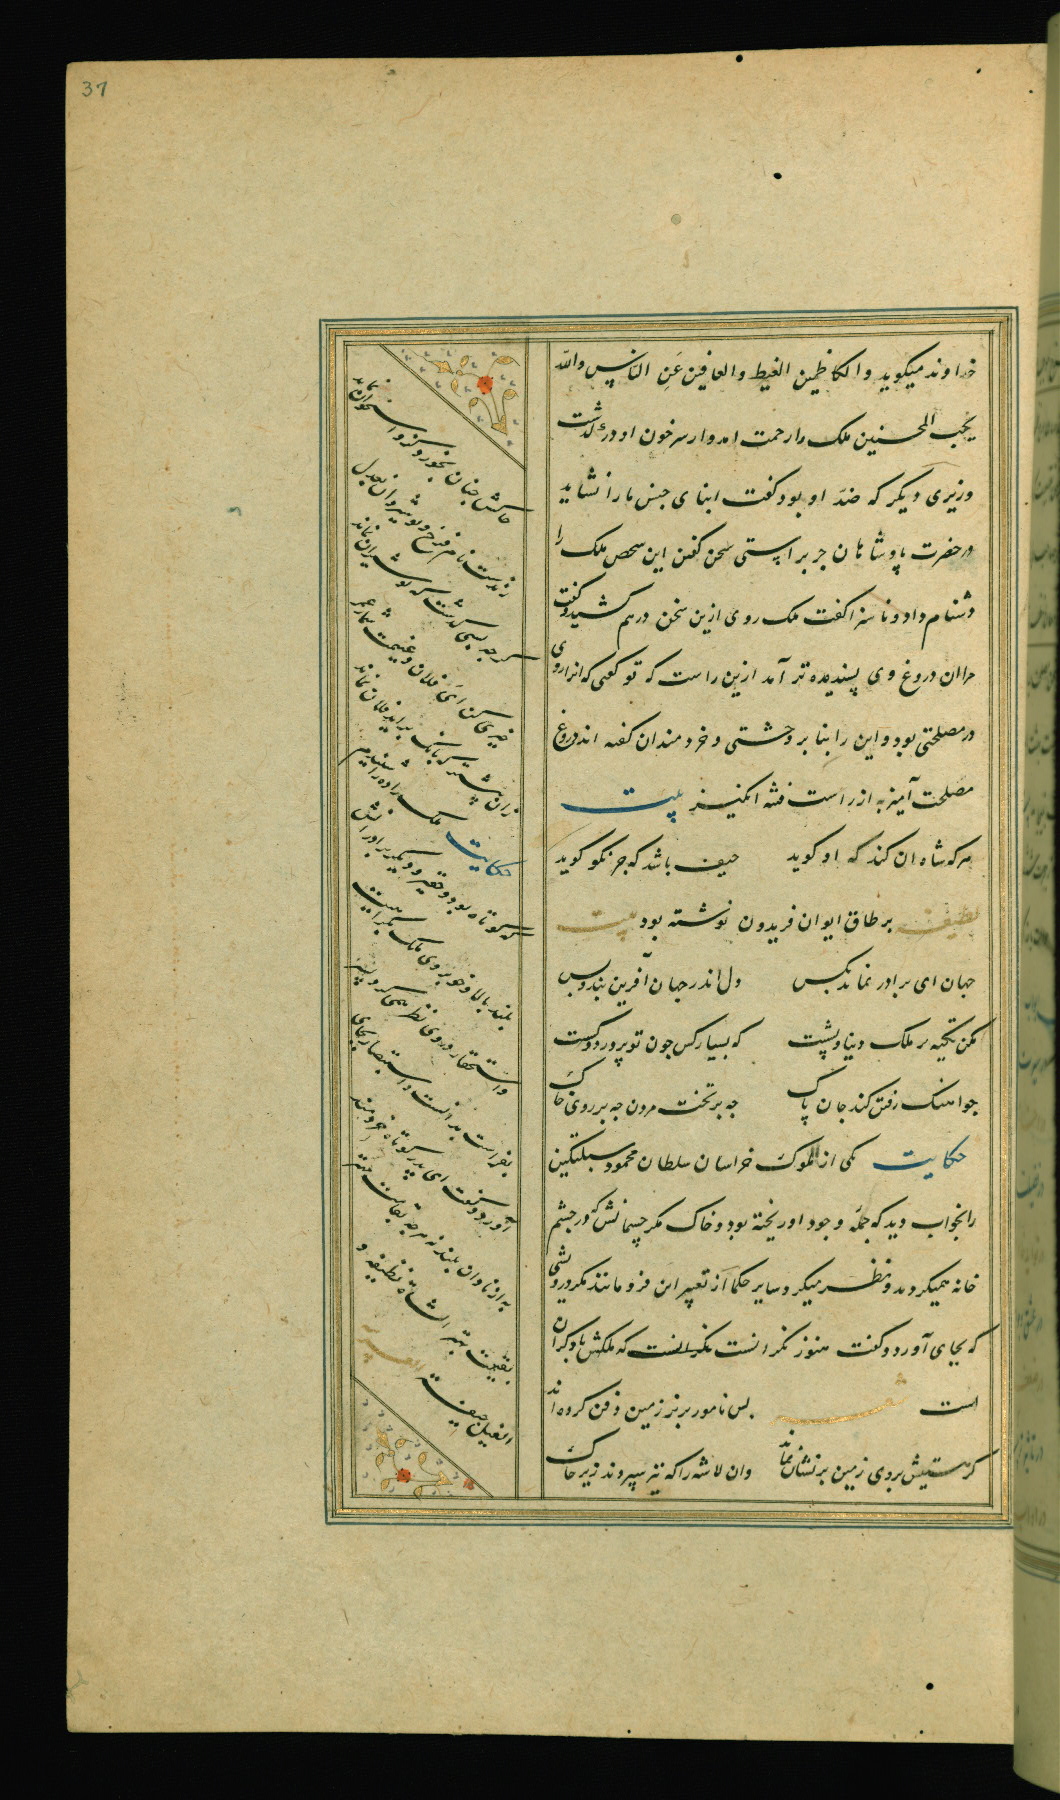 37
خداوند میکوید والکاظمین الغیط والعافین عَنِ الناس والله
یحب المحسنین ملک را رحمت امد و از سر خون او در گذشت
وزیری دیکر که ضدّ او بود کفت ابنای جنس ما را نشاید
در حضرت پادشاهان جز براستی سخن کفتن این سخص ملک را
دشنام داد و ناسزا کفت ملک روی ازین سخن درهم کشید و کفت
مرا ان دروغ وی پسندیده تر آمد ازین راست که تو کفتی که انرا روی
در مصلحتی بود و این را بنا بر وحشتی و خردمندان کفته اند دروغ
مصلحت آمیز به از راست فتنه انکیز بیت
هر که شاه ان کند که او کوید حیف باشد که جز نکو کوید
لطیفه بر طاق ایوان فریدون نوشته بود بیت
جهان ای برادر نماند بکس دل اندر جهان آفرین بند و بس
مکن تکیه بر ملک دنیا و پشت که بسیار کس جون تو پرورد و کشت
جو اهنک رفتن کند جان پاک جه بر تخت مردن جه بر روی خاک
حکایت یکی از ملوک خراسان سلطان محمود سبکتکین
را بخواب دید که جمله وجود او ریخته بود و خاک مکر چشمانش که در چشم
خانه همیکردید و نظر میکرد سایر حکما از تعبیر این فرو ماندند مکر درویشی
که بجای آورد و کفت هنوز نکرانست نکرانست که ملکش با دکران
است شعر بس نامور بزیر زمین دفن کرده اند
کز هستیش بروی زمین بر نشان نماند وان لاشه را که نیز سپردند زیر خاک
خاکش جنان بخورد کزو استخوان نماند
زندست نام فرخ نوشیروان بعدل
کرچه بسی کذشت که نوشیروان نماند
خیری کن ای فلان و غنیمت شمار عمر
زان پیشتر که بانک براید فلان نماند
حکایت ملک زاده را شنیدم
که کوتاه بود و حقیر و دیکر برادرانش
بلند بالا و خوبروی ملک بکراهیت
واستحقار در وی نظر همی کرد پسر
بفراست بدانست و استبصار بجای
آورد و کفت ای پدر کوتاه خردمند
به از نادان بلند نه هرجه بقامت مهتر
بقیمت بهتر الشاة نظیفه و
الفیل جیفة